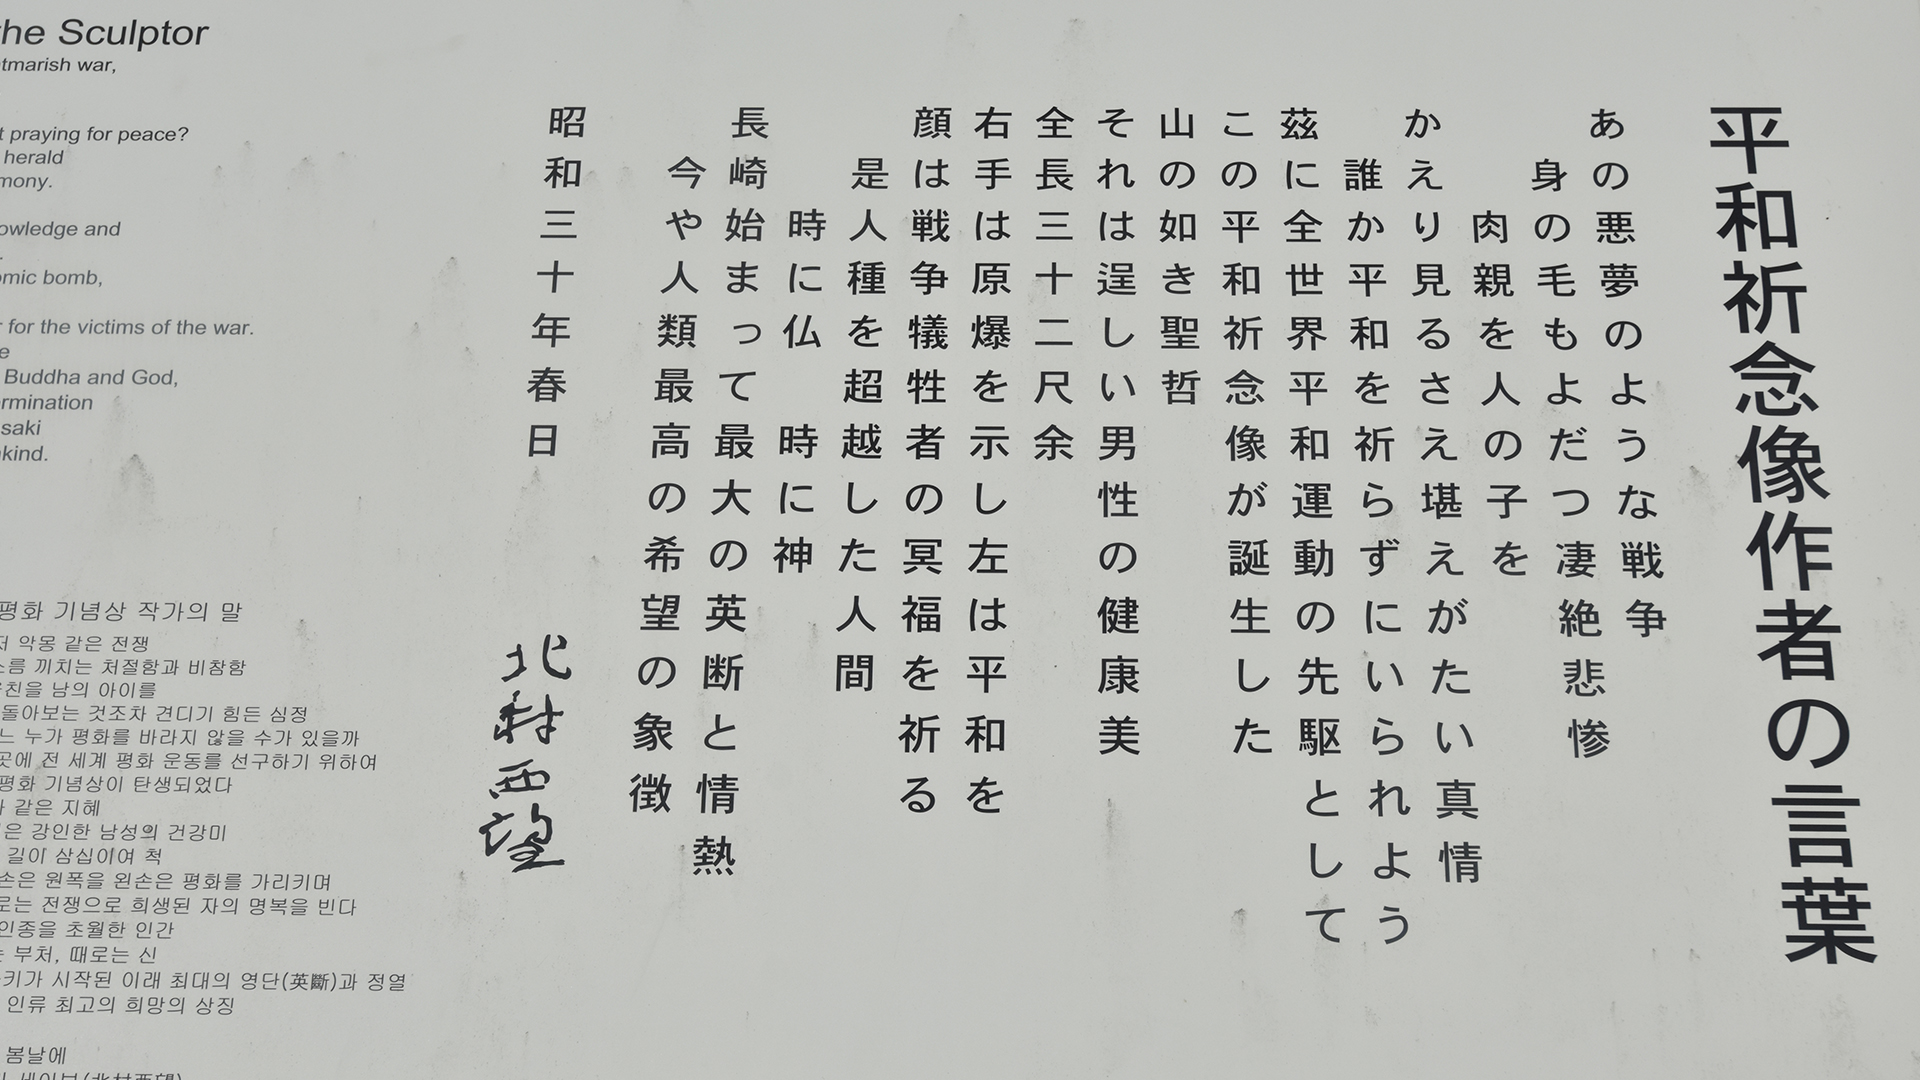 平和祈念像作者の言葉
あの悪夢のような戦争
身の毛もよだつ凄絶悲惨
肉親を人の子を
かえり見るさえ堪えがたい真情
誰か平和を祈らずにいられよう
茲に全世界平和運動の先駆として
この平和祈念像が誕生した
山の如き聖哲
それは逞しい男性の健康美
全長三十二尺余
右手は原爆を示し左は平和を
顔は戦争犠牲者の冥福を祈る
是人種を超越した人間
時に仏 時に神
長崎始まって最大の英断と情熱
今や人類最高の希望の象徴
昭和三十年春日
北村西望
the Sculptor
tmarish war,
t praying for peace?
herald
mony.
owledge and
omic bomb,
r for the victims of the war.
e
Buddha and God,
ermination
saki
kind.
평화 기념상 작가의 말
저 악몽 같은 전쟁
소름 끼치는 처절함과 비참함
육친을 남의 아이를
돌아보는 것조차 견디기 힘든 심정
느 누가 평화를 바라지 않을 수가 있을까
곳에 전 세계 평화 운동를 선구하기 위하여
평화 기념상이 탄생되었다
과 같은 지혜
은 강인한 남성의 건강미
길이 삼십이여 척
손은 원폭을 왼손은 평화를 가리키며
로는 전쟁으로 희생된 자의 명복을 빈다
인종을 초월한 인간
는 부처, 때로는 신
키가 시작된 이래 최대의 영단(英斷)과 정열
인류 최고의 희망의 상징
봄날에